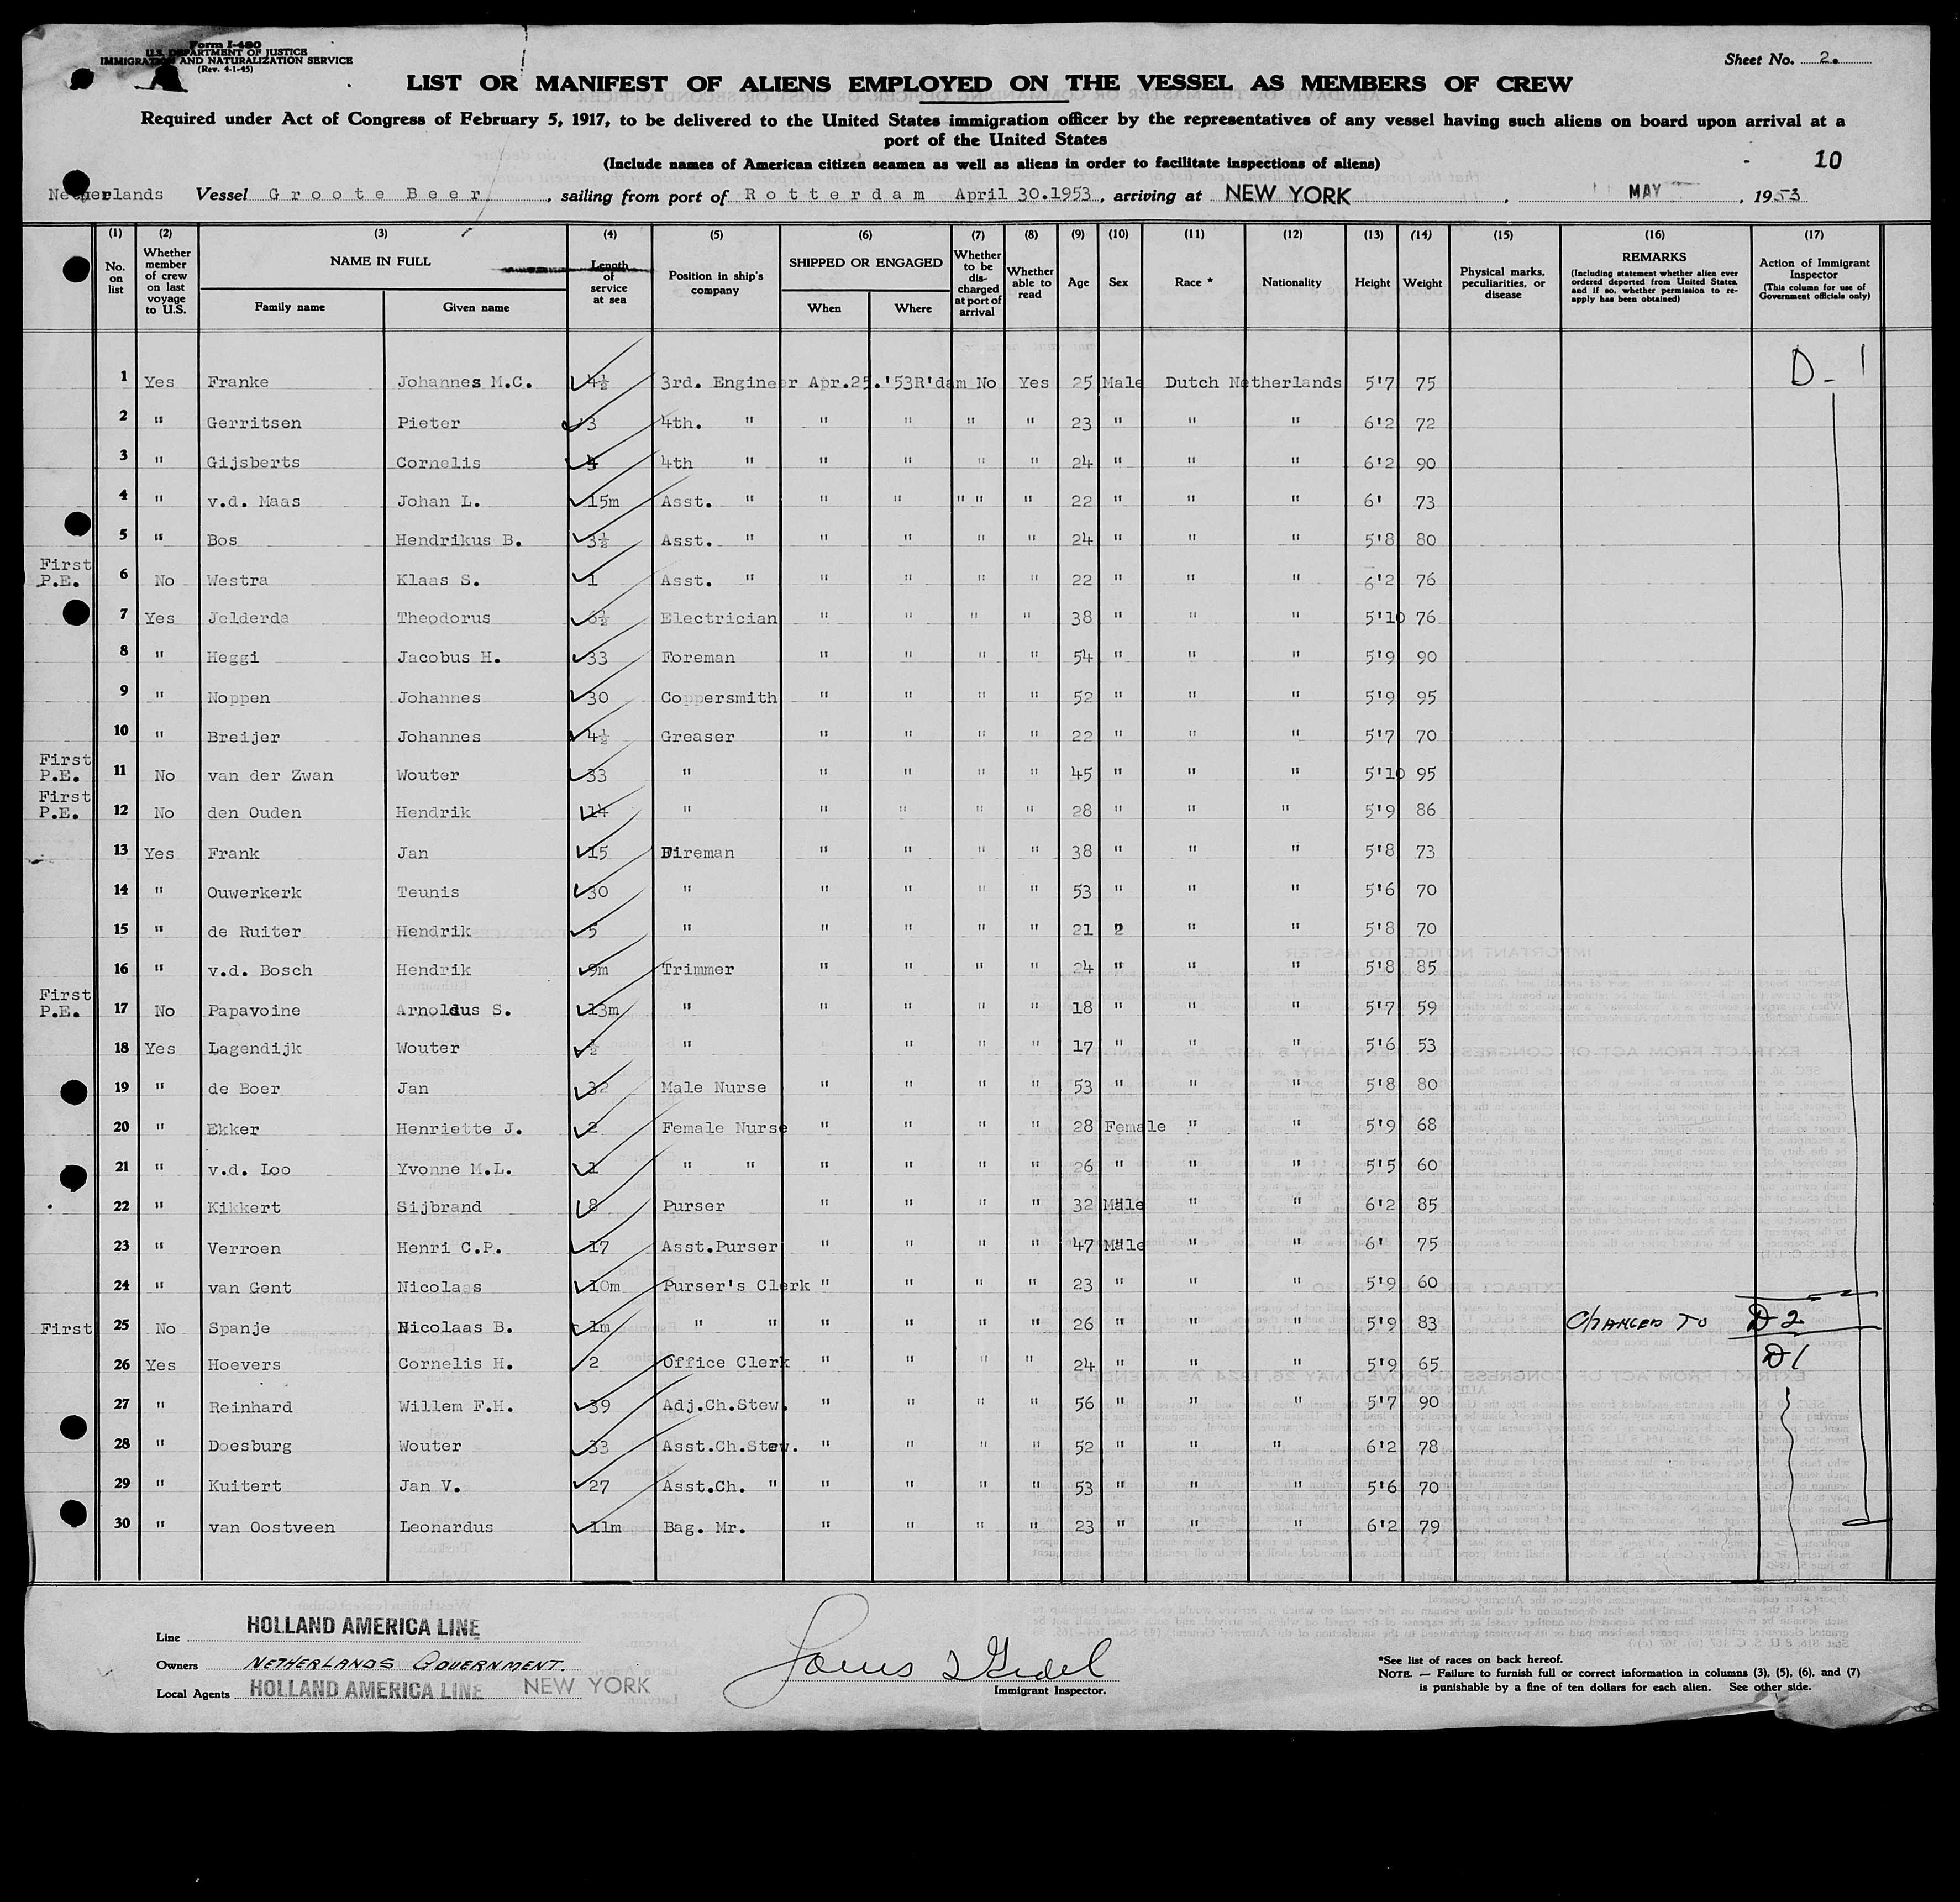 Form I-480
U.S. DEPARTMENT OF JUSTICE
IMMIGRATION AND NATURALIZATION SERVICE
(Rev. 4-1-45)
Sheet No. 2.
LIST OR MANIFEST OF ALIENS EMPLOYED ON THE VESSEL AS MEMBERS OF CREW
Required under Act of Congress of February 5, 1917, to be delivered to the United States immigration officer by the representatives of any vessel having such aliens on board upon arrival at a
port of the United States
(Include names of American citizen seamen as well as aliens in order to facilitate inspections of aliens)
10
Netherlands Vessel Groote Beer, sailing from port of Rotterdam April 30.1953, arriving at NEW YORK, MAY, 1953
(1) (2) (3) (4) (5) (6) (7) (8) (9) (10) (11) (12) (13) (14) (15) (16) (17)
No. on list
Whether member of crew on last voyage to U.S.
NAME IN FULL
Family name
Given name
Length of service at sea
Position in ship's company
SHIPPED OR ENGAGED
When
Where
Whether to be discharged at port of arrival
Whether able to read
Age
Sex
Race *
Nationality
Height
Weight
Physical marks, peculiarities, or disease
REMARKS
(Including statement whether alien ever ordered deported from United States, and if so, whether permission to reapply has been obtained)
Action of Immigrant Inspector
(This column for use of Government officials only)
1 Yes Franke Johannes M.C. 4½ 3rd. Engineer Apr.25.'53 R'dam No Yes 25 Male Dutch Netherlands 5'7 75 D-1
2 " Gerritsen Pieter 3 4th. " " " " " 23 " " " 6'2 72
3 " Gijsberts Cornelis 4 4th " " " " " 24 " " " 6'2 90
4 " v.d. Maas Johan L. 15m Asst. " " " " " " 22 " " " 6' 73
5 " Bos Hendrikus B. 3½ Asst. " " " " " 24 " " " 5'8 80
First P.E. 6 No Westra Klaas S. 1 Asst. " " " " " 22 " " " 6'2 76
7 Yes Jelderda Theodorus 6½ Electrician " " " " 38 " " " 5'10 76
8 " Heggi Jacobus H. 33 Foreman " " " " 54 " " " 5'9 90
9 " Noppen Johannes 30 Coppersmith " " " " 52 " " " 5'9 95
10 " Breijer Johannes 4½ Greaser " " " " 22 " " " 5'7 70
First P.E. 11 No van der Zwan Wouter 33 " " " " " 45 " " " 5'10 95
First P.E. 12 No den Ouden Hendrik 14 " " " " " 28 " " " 5'9 86
13 Yes Frank Jan 15 Fireman " " " " 38 " " " 5'8 73
14 " Ouwerkerk Teunis 30 " " " " " 53 " " " 5'6 70
15 " de Ruiter Hendrik 5 " " " " " 21 " " " 5'8 70
16 " v.d. Bosch Hendrik 9m Trimmer " " " " 24 " " " 5'8 85
First P.E. 17 No Papavoine Arnoldus S. 13m " " " " " 18 " " " 5'7 59
18 Yes Lagendijk Wouter ½ " " " " " 17 " " " 5'6 53
19 " de Boer Jan 32 Male Nurse " " " " 53 " " " 5'8 80
20 " Ekker Henriette J. 2 Female Nurse " " " " 28 Female " " 5'9 68
21 " v.d. Loo Yvonne M.L. 1 " " " " " " 26 " " " 5'5 60
22 " Kikkert Sijbrand 8 Purser " " " " 32 Male " " 6'2 85
23 " Verroen Henri C.P. 17 Asst.Purser " " " " 47 Male " " 6' 75
24 " van Gent Nicolaas 10m Purser's Clerk " " " " 23 " " " 5'9 60
First 25 No Spanje Nicolaas B. 1m " " " " " " 26 " " " 5'9 83 CHANGED TO D2
26 Yes Hoevers Cornelis H. 2 Office Clerk " " " " 24 " " " 5'9 65 D1
27 " Reinhard Willem F.H. 39 Adj.Ch.Stew. " " " " 56 " " " 5'7 90
28 " Doesburg Wouter 33 Asst.Ch.Stew. " " " " 52 " " " 6'2 78
29 " Kuitert Jan V. 27 Asst.Ch. " " " " " 53 " " " 5'6 70
30 " van Oostveen Leonardus 11m Bag. Mr. " " " " 23 " " " 6'2 79
Line HOLLAND AMERICA LINE
Owners NETHERLANDS GOVERNMENT.
Local Agents HOLLAND AMERICA LINE NEW YORK
Immigrant Inspector.
*See list of races on back hereof.
NOTE. — Failure to furnish full or correct information in columns (3), (5), (6), and (7)
is punishable by a fine of ten dollars for each alien. See other side.